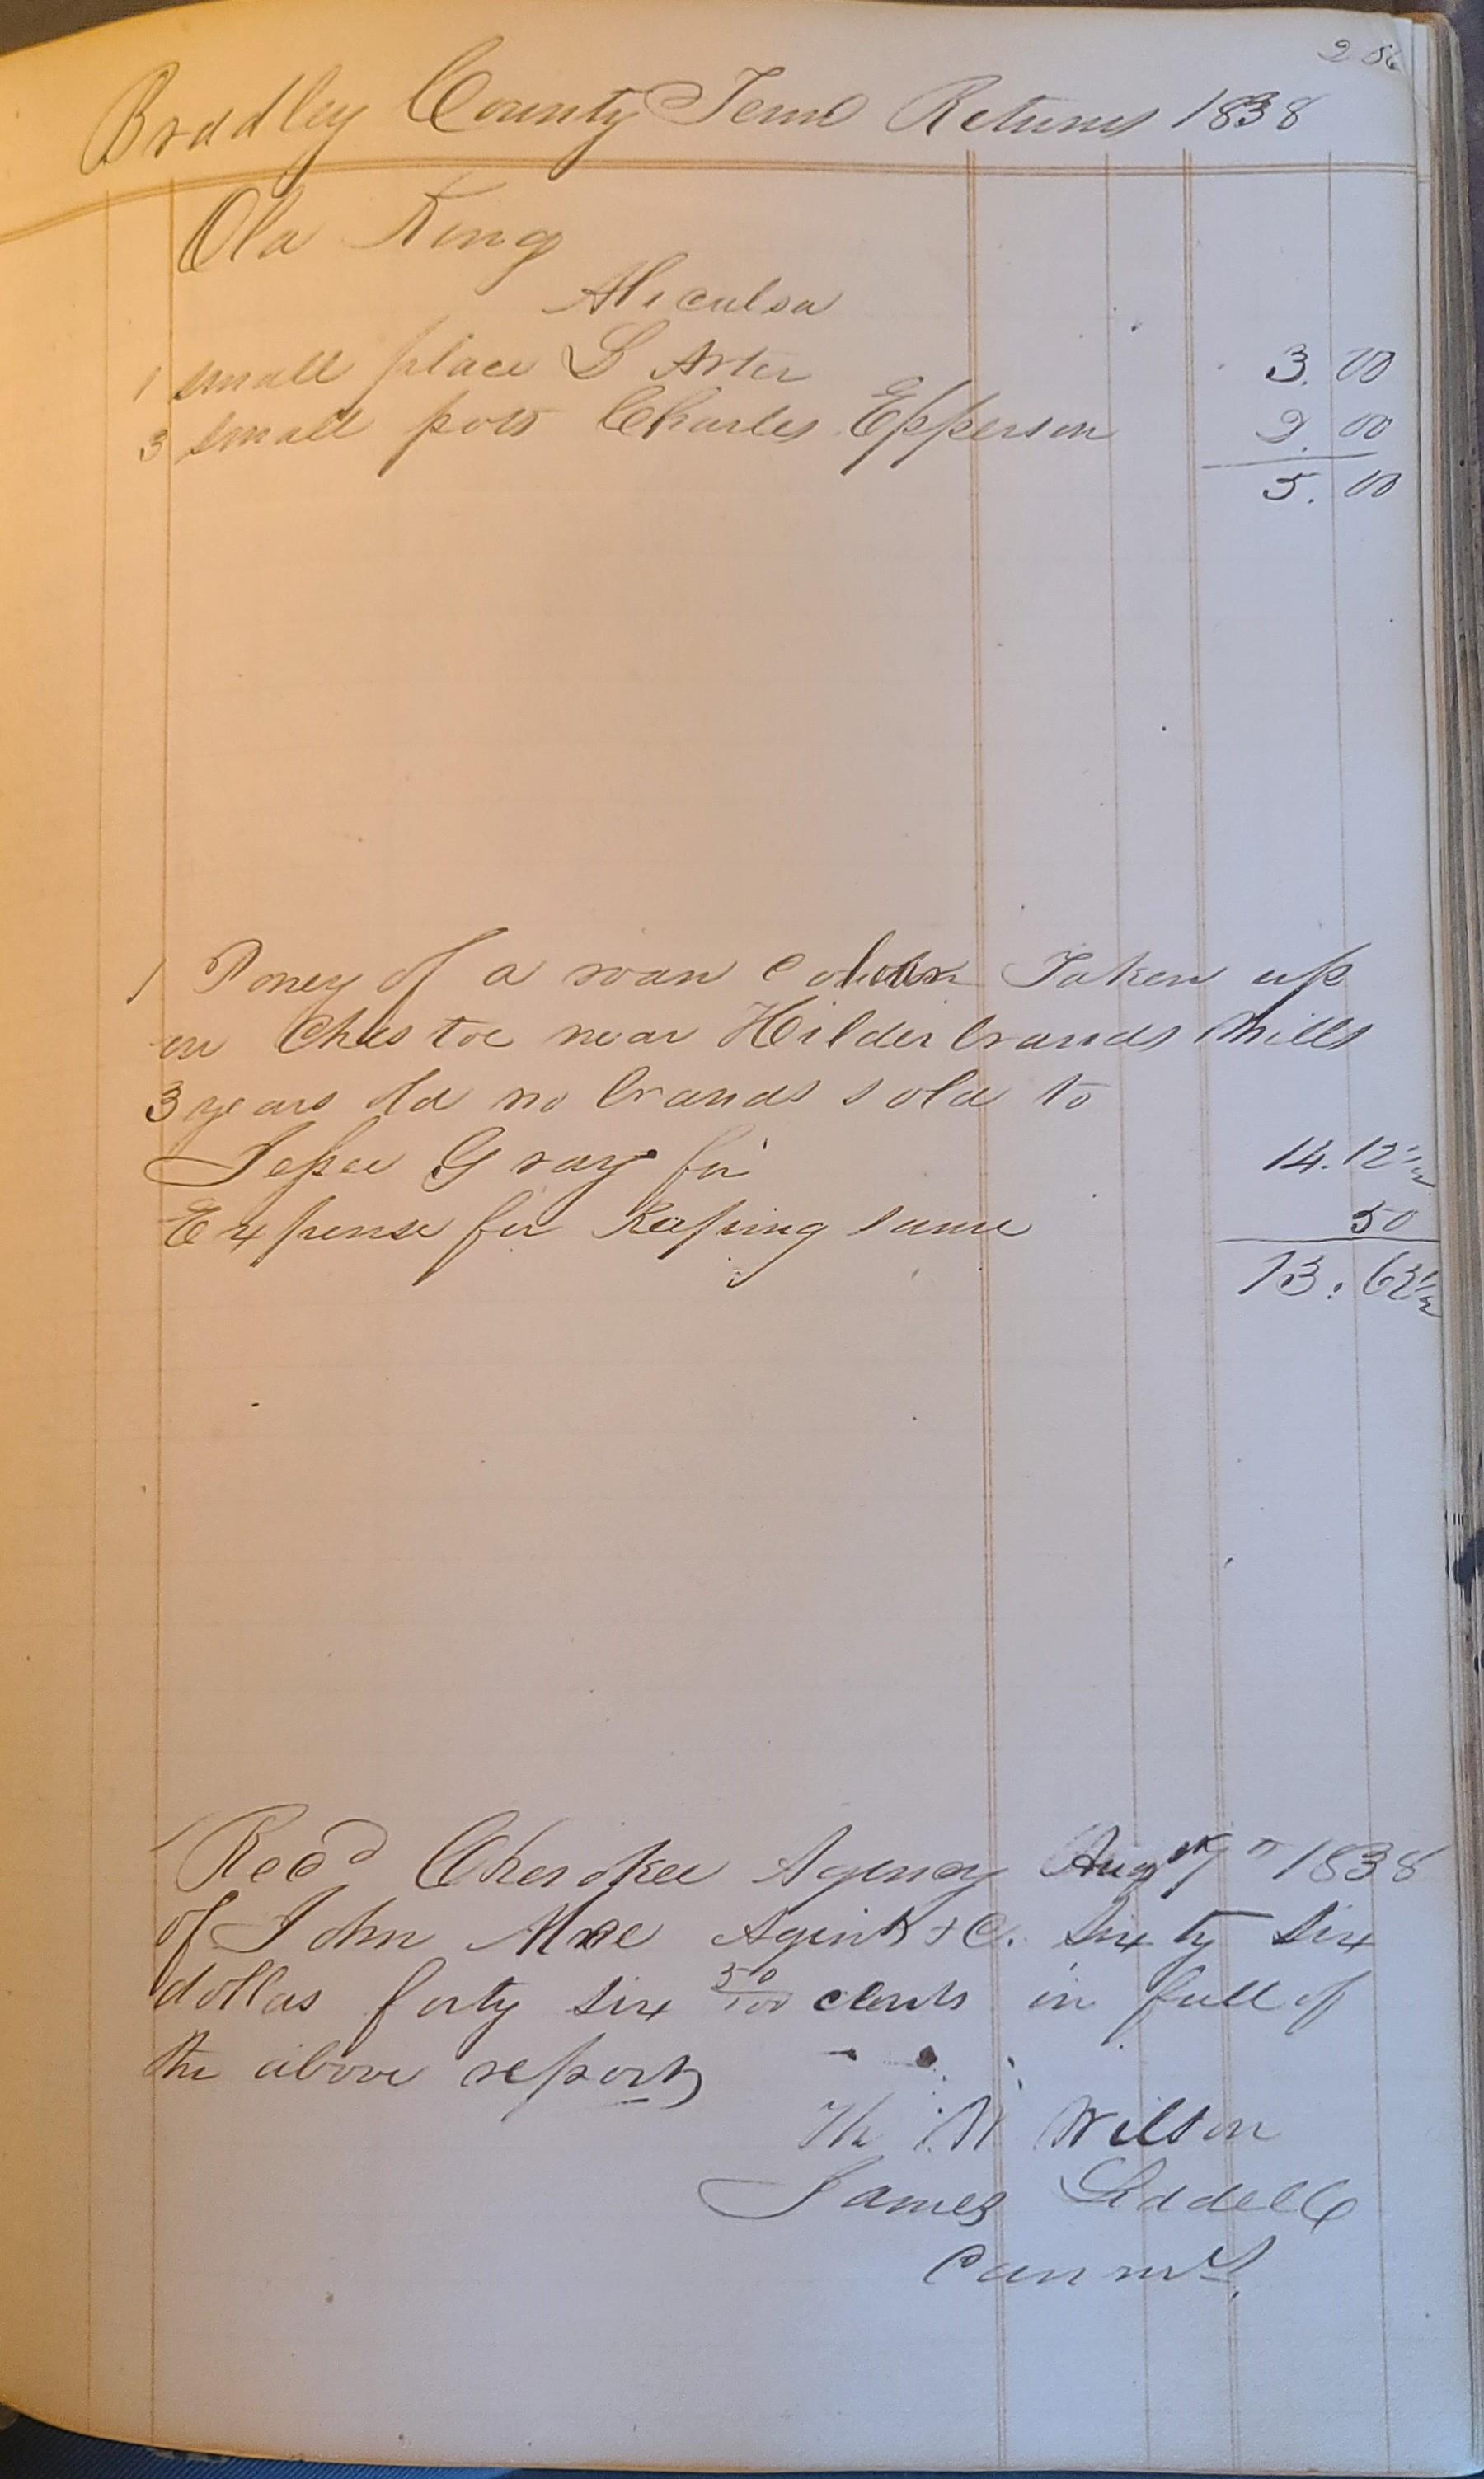 256
Bradley County Tenn Returns 1838
Old King
Aliculsa
1 small place L Arter 3.00
3 small pots Charles Epperson 2.00
5.00
1 Poney of a roan Taken up
on Chestoe near Hilderbrands Mills
3 years old no brands sold to
Jesse Gray for 14.12 1/2
Expense for Keeping same 50
13.62 1/2
Recd Cherokee Agency Aug 1838
of John Agent &C. Sixty Six
dollars forty six 50/100 cents in full of
the above report
Th W Wilson
James Liddell